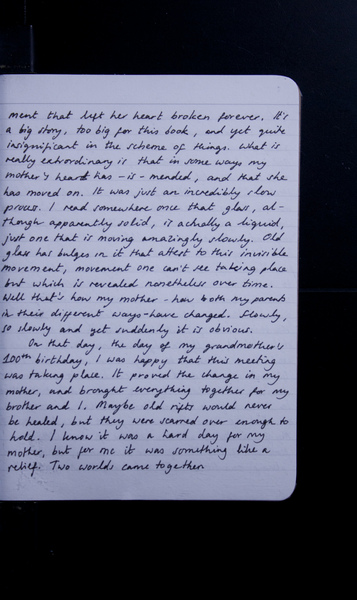 ment that left her heart broken forever. It's
a big story, too big for this book, and yet quite
insignificant in the scheme of things. What is
really extrordinary is that in some ways my
mother's heart has - is - mended, and that she
has moved on. It was just an incredibly slow
process. I read somewhere once that glass, al-
though apparently solid, is actually a liquid,
just one that is moving amazingly slowly. Old
glass has bulges in it that attest to this invisible
movement, movement one can't see taking place
but which is revealed nonetheless over time.
Well that's how my mother - how both my parents
in their different ways - have changed. Slowly,
so slowly and yet suddenly it is obvious.
On that day, the day of my grandmother's
100th birthday, I was happy that this meeting
was taking place. It proved the change in my
mother, and brought everything together for my
brother and I. Maybe old rifts would never
be healed, but they were scarred over enough to
hold. I know it was a hard day for my
mother, but for me it was something like a
relief. Two worlds came together.